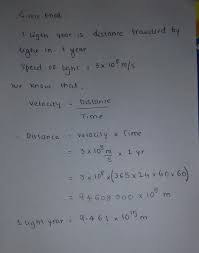 Given that
1 light year is distance travelled by
light in 1 year
Speed of light = 3x10⁸ m/s
We know that,
Velocity = Distance
Time
Distance = Velocity x Time
= 3x10⁸ m/s x 1 yr
= 3x10⁸ x (365x24x60x60)
= 94608000 x10⁸ m
1 light year = 9.461 x10¹⁵ m